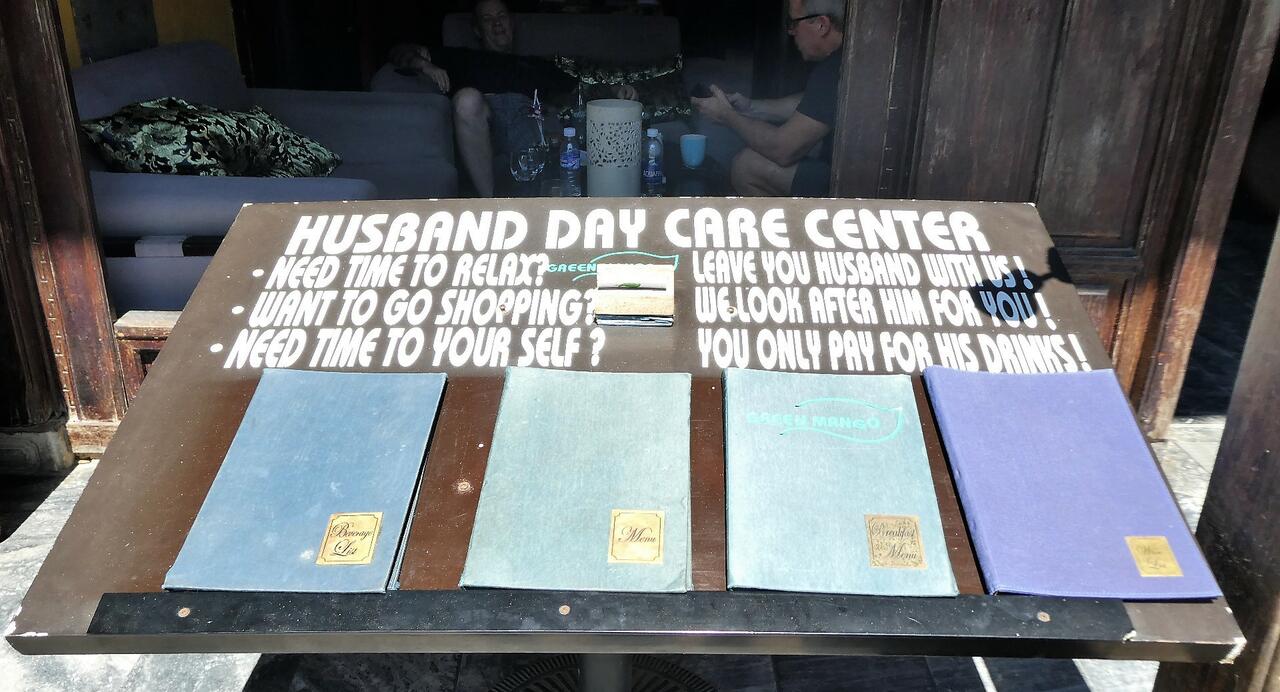 HUSBAND DAY CARE CENTER
• NEED TIME TO RELAX? LEAVE YOU HUSBAND WITH US !
• WANT TO GO SHOPPING? WE LOOK AFTER HIM FOR YOU !
• NEED TIME TO YOUR SELF ? YOU ONLY PAY FOR HIS DRINKS !
GREEN
GREEN MANGO
Beverage
List
Menu
Breakfast
Menu
Wine
List